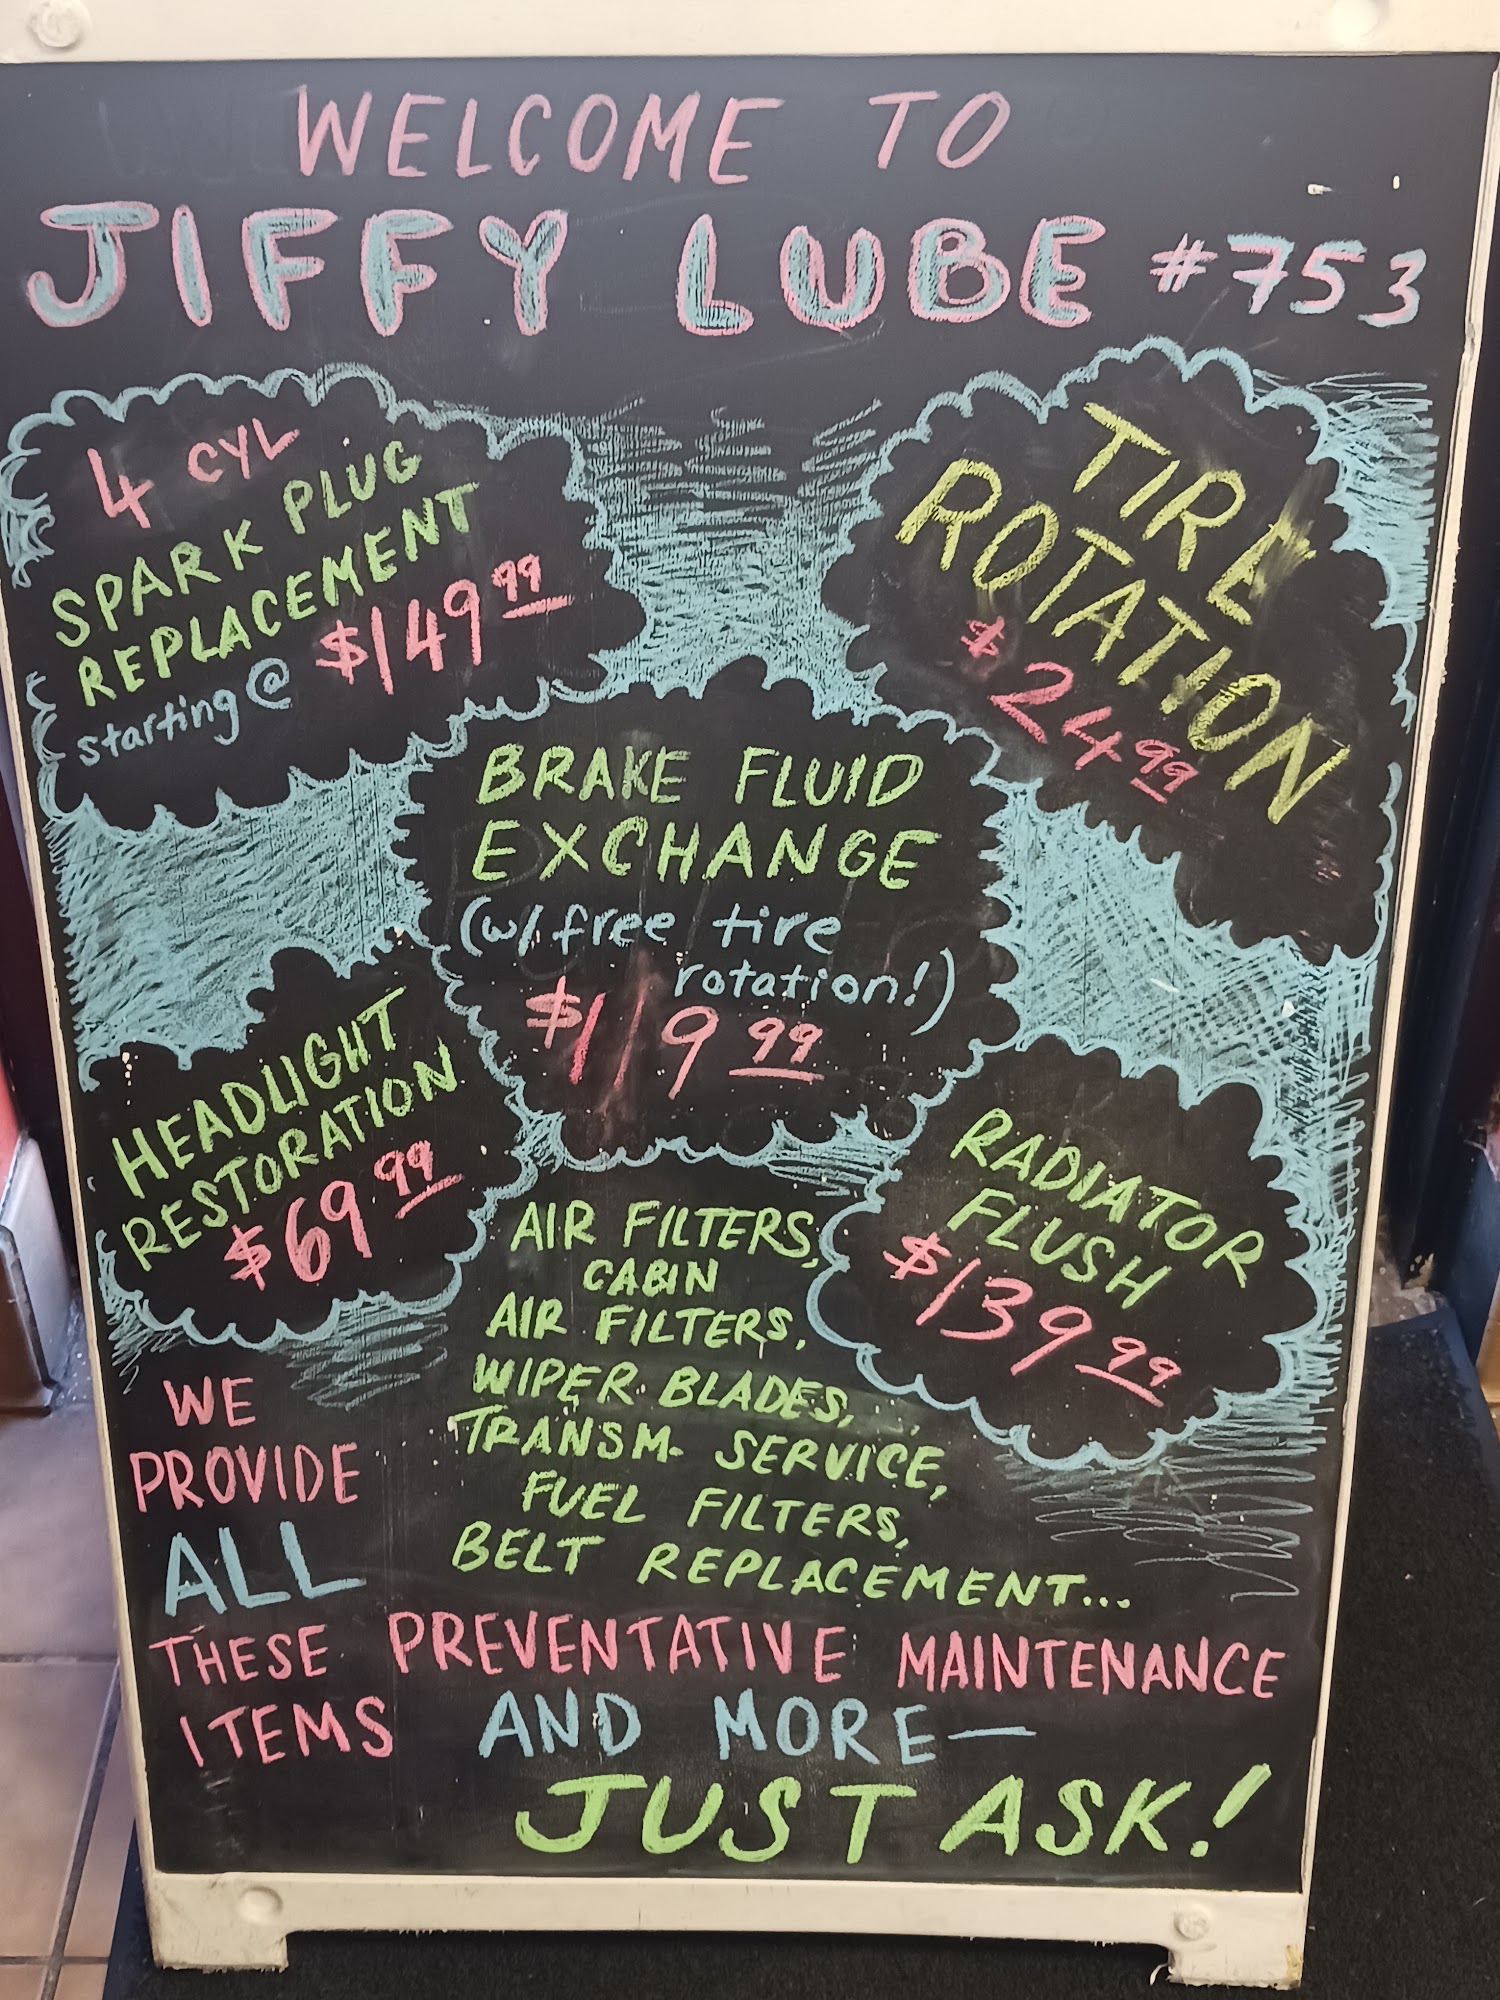 WELCOME TO
JIFFY LUBE #753
4 CYL
SPARK PLUG
REPLACEMENT
starting @ $149.99
TIRE
ROTATION
$24.99
BRAKE FLUID
EXCHANGE
(w/ free tire
rotation!)
$119.99
HEADLIGHT
RESTORATION
$69.99
RADIATOR
FLUSH
$139.99
AIR FILTERS,
CABIN
AIR FILTERS,
WIPER BLADES,
TRANSM. SERVICE,
FUEL FILTERS,
BELT REPLACEMENT...
WE
PROVIDE
ALL
THESE PREVENTATIVE MAINTENANCE
ITEMS AND MORE—
JUST ASK!